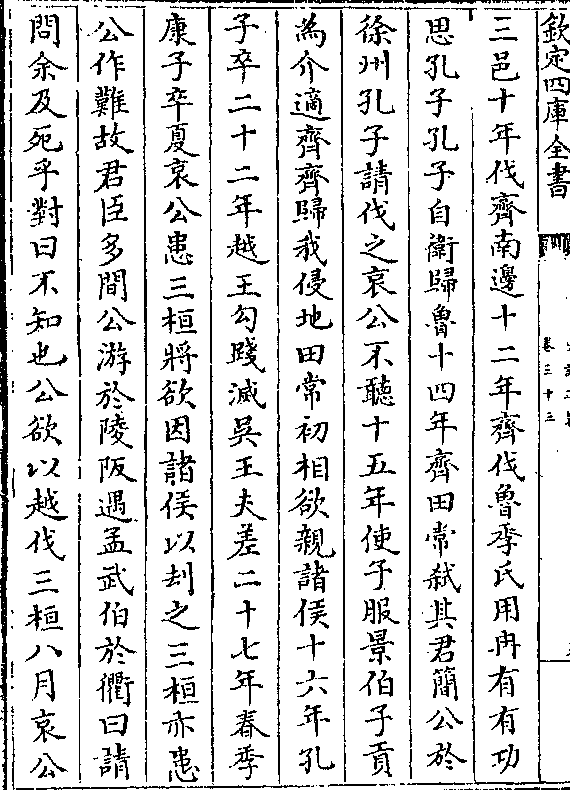 欽定四庫全書
卷三十三
三邑十年伐齊南邊十二年齊伐魯季氏用冉有有功
思孔子孔子自衛歸魯十四年齊田常弑其君簡公於
徐州孔子請伐之哀公不聽十五年使子服景伯子貢
為介適齊齊歸我侵地田常初相欲親諸侯十六年孔
子卒二十二年越王勾踐滅吳王夫差二十七年春季
康子卒夏哀公患三桓將欲因諸侯以刦之三桓亦患
公作難故君臣多間公游於陵阪遇孟武伯於衢曰請
問余及死乎對曰不知也公欲以越伐三桓八月哀公